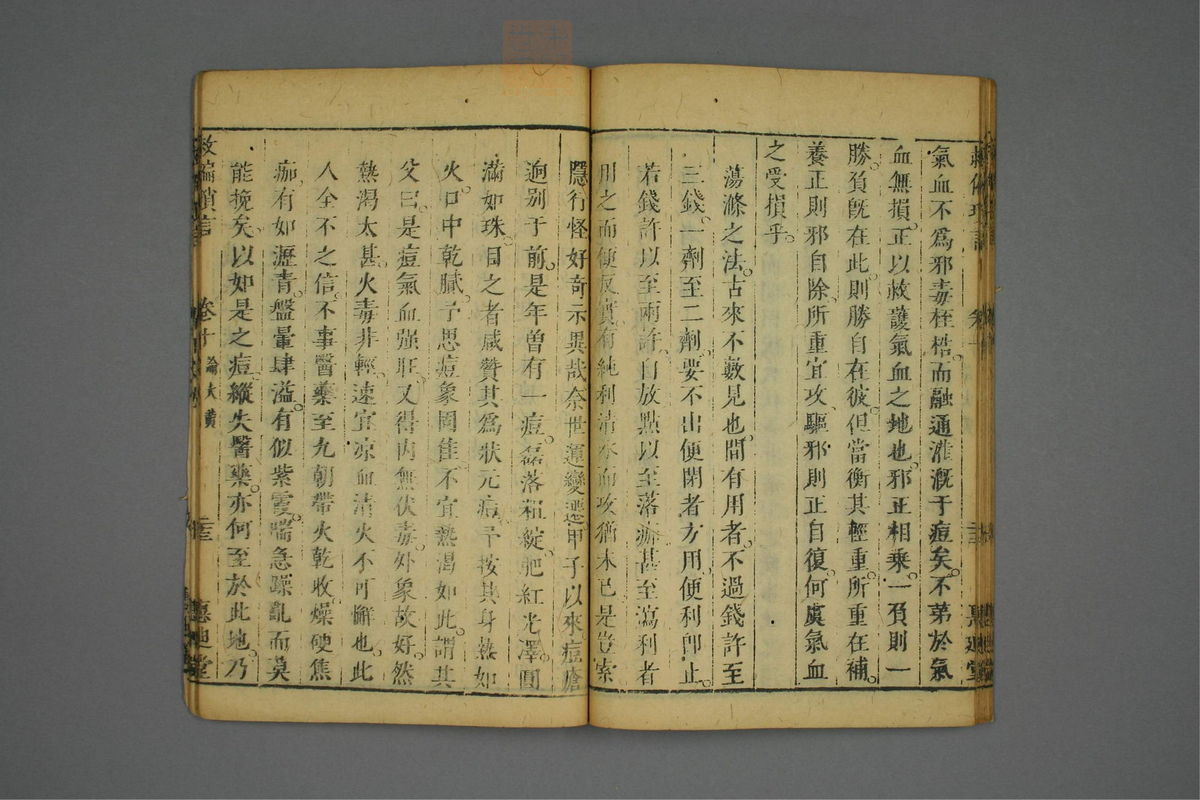 氣血不爲邪毒桎梏。而融通灌漑于痘矣。不苐於氣
血無損。正以救護氣血之地也。邪正相乗。一負則一
勝。負旣在此。則勝自在彼。但當衡其輕重。所重在補。
養正則邪自除。所重宜攻。驅邪則正自復。何虞氣血
之受損乎。
蕩滌之法。古來不藪見也。間有用者。不過錢許至
三錢。一劑至二劑。要不出便閉者方用。便利卽止。
若錢許以至兩許。自放㸃以至落痂。甚至瀉利者
用之而便反實。有純利清水而攻猶未已。是豈索
隱行怪。好奇示異哉。奈世運變遷。甲子以來。痘瘡
逈别于前。是年曽有一痘。磊落鬆綻。肥紅光澤。圓
滿如珠。目之者咸贊其爲狀元痘。予按其身熱如
火。口中乾膩。予思痘象固佳。不宜熱渴如此。謂其
父曰。是痘氣血強旺。又得内無伏毒。外象故好。然
熱渴太甚。火毒非輕。速宜凉血清火。不可懈也。此
人全不之信。不事醫藥。至九朝帶火乾收。燥硬焦
痂。有如瀝青。盤暈肆溢。有似紫霞。喘急躁亂而莫
能挽矣。以如是之痘。縱失醫藥。亦何至於此地。乃
救偏𤨏言 卷十 論大黃 三 惠迪堂